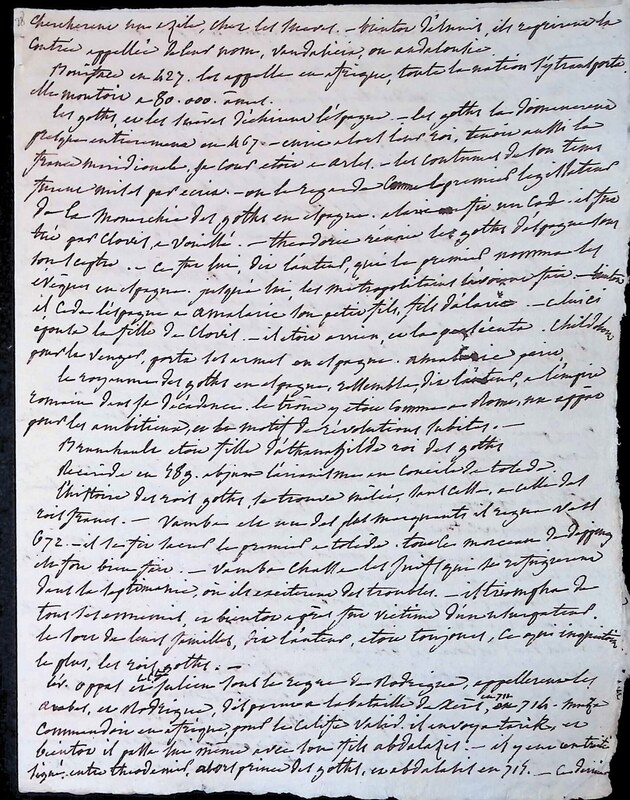 chercherent un asile, chez les Sueves. — bientot désunis, ils reprirent la
Contrée appellée de leur nom, vandalicia, ou andalousie.
Boniface en 427. les appelle en afrique, toute la nation s'y transporte
elle montoit a 80.000. âmes.
les goths, et les Sueves déchirent l'espagne. — les goths la dominerent
presque entierement en 467 — euric alors leur roi, tenoit aussi la
france méridionale, sa cour etoit a arles. — les coutumes de son tems
furent mises par ecrit. — on le regarde comme le premier legislateur
de la Monarchie des goths en espagne. alaric fit un code. il fut
tué par Clovis a voüillé. — théodoric réunit les goths d'espagne sous
son sceptre. — Ce fut lui, dit l'auteur, qui le premier nomma les
evêques en espagne. jusqu'à lui, les metropolitains — bientot
il céda l'espagne a amalaric son petit fils, fils d'alaric. —
epousa la fille de Clovis. — il etoit arrien, et la persécuta. Childebert
pour la venger, porta ses armes en espagne. amalaric perit,
le royaume des goths en espagne, ressemble, dit l'auteur, a l'empire
romain dans sa décadence. le trône y etoit comme a Rome, un appas
pour les ambitieux, et un motif de révolutions subites. —
Brunehault etoit fille d'athanagilde roi des goths
Recarede en 589. abjura l'arianisme au concile de tolede
l'histoire des rois goths, se trouve mêlée, sans cesse, a celle des
rois francs. — Vamba est un des plus marquants il regna vers
672. — il se fit sacrer le premier a tolede. tout ce morceau de
est fort bien fait. — vamba chassa les juifs qui se refugierent
dans la septimanie, où ils exciterent des troubles. — il triompha de
tous ses ennemis, et bientot après fut victime d'un usurpateur.
le sort de leurs familles, dit l'auteur, etoit toujours, ce qui inquiétoit
le plus, les rois goths. —
oppas et julien sous le regne de Rodrigue, appellerent les
arabes, et Rodrigue, disparut a la bataille de Xerès, en 714. muza
commandoit en afrique, pour le calife valid. il envoya tarik, et
bientot il passa lui même avec son fils abdalazis. — il y eut un traité
signé entre theodemir, alors prince des goths, et abdalasis en 715. — ce dernier